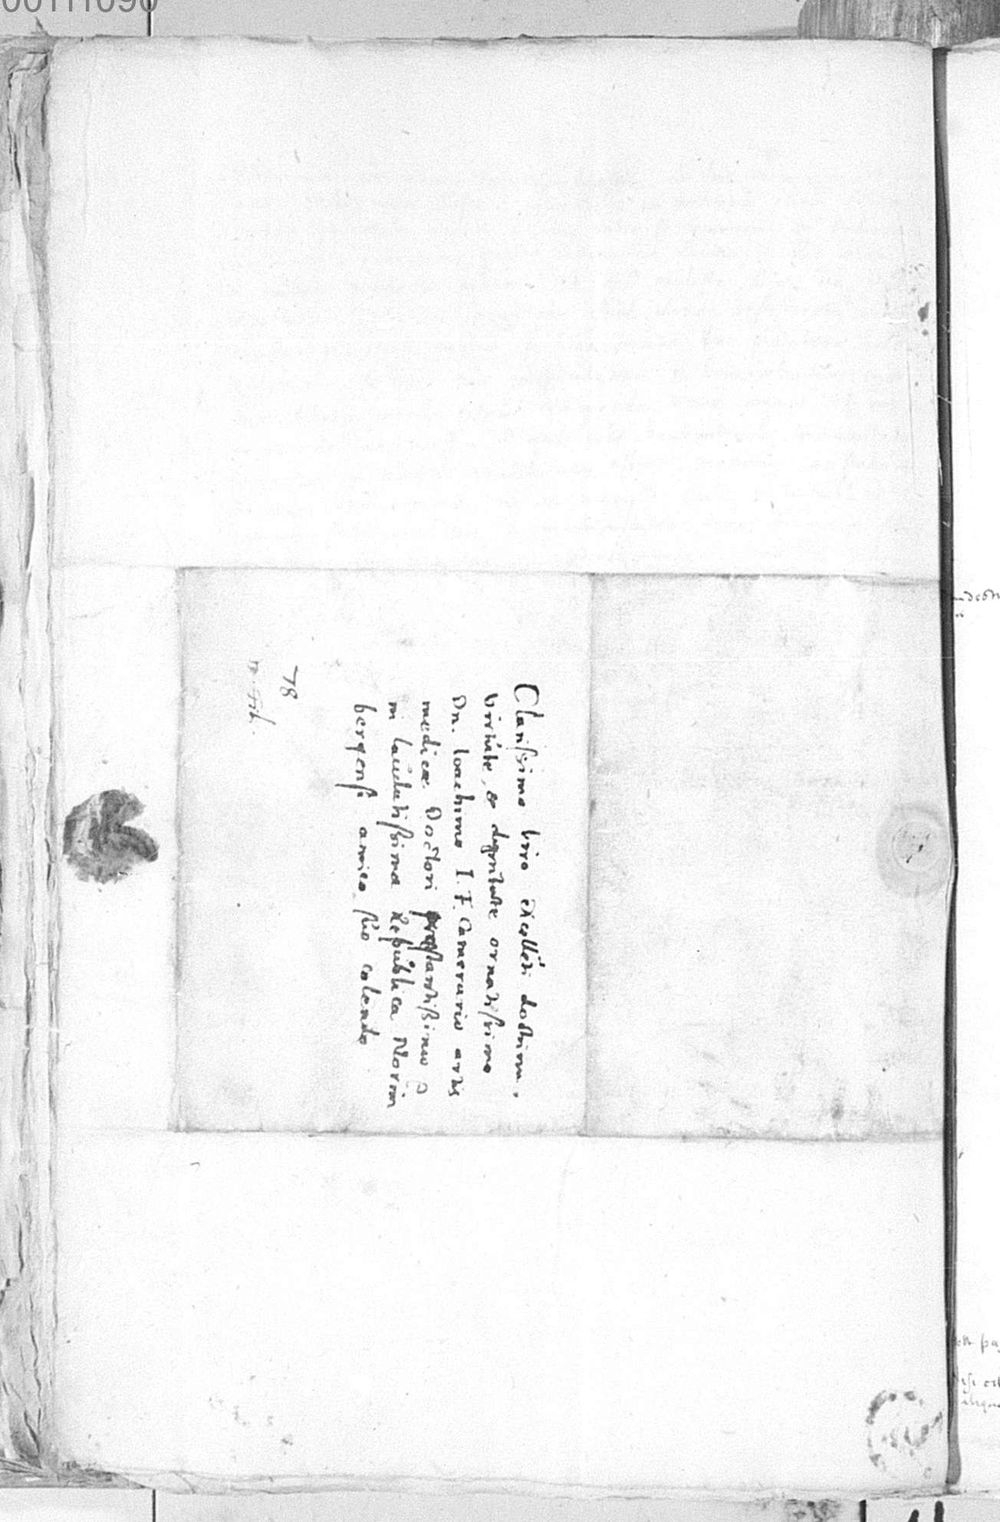 Clarissimo viro excellẽti doctrina,
virtute, & dignitate ornatissimo
Dn. Ioachimo I. F. Camerario artis
medicæ Doctori præstantissimo
in laudatissima Republica Norim
bergensi amico suo colendo
78
00111090